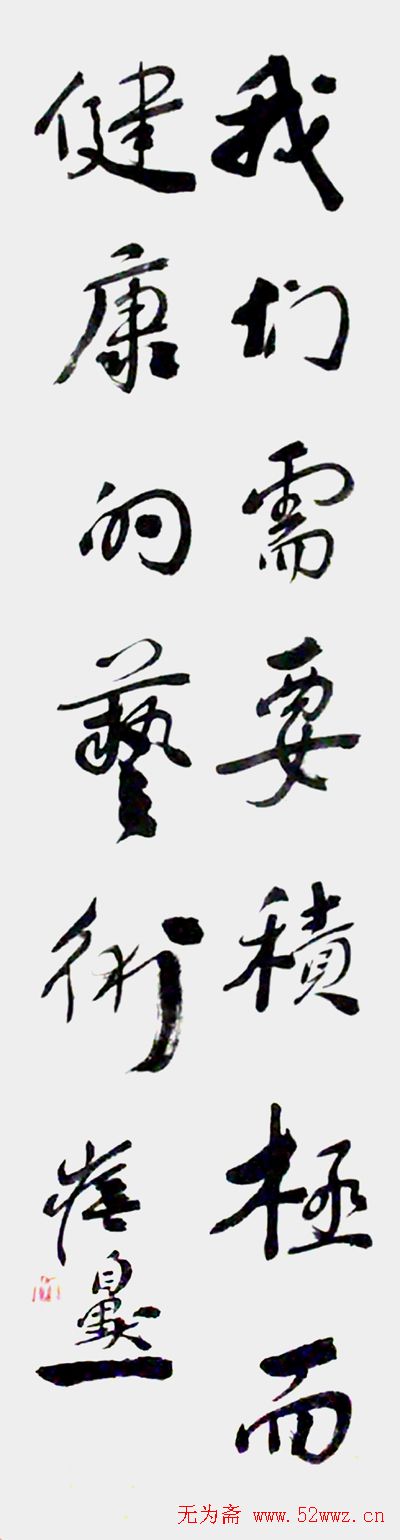 我们需要積極而
健康的藝術
无为斋 www.52wwz.cn